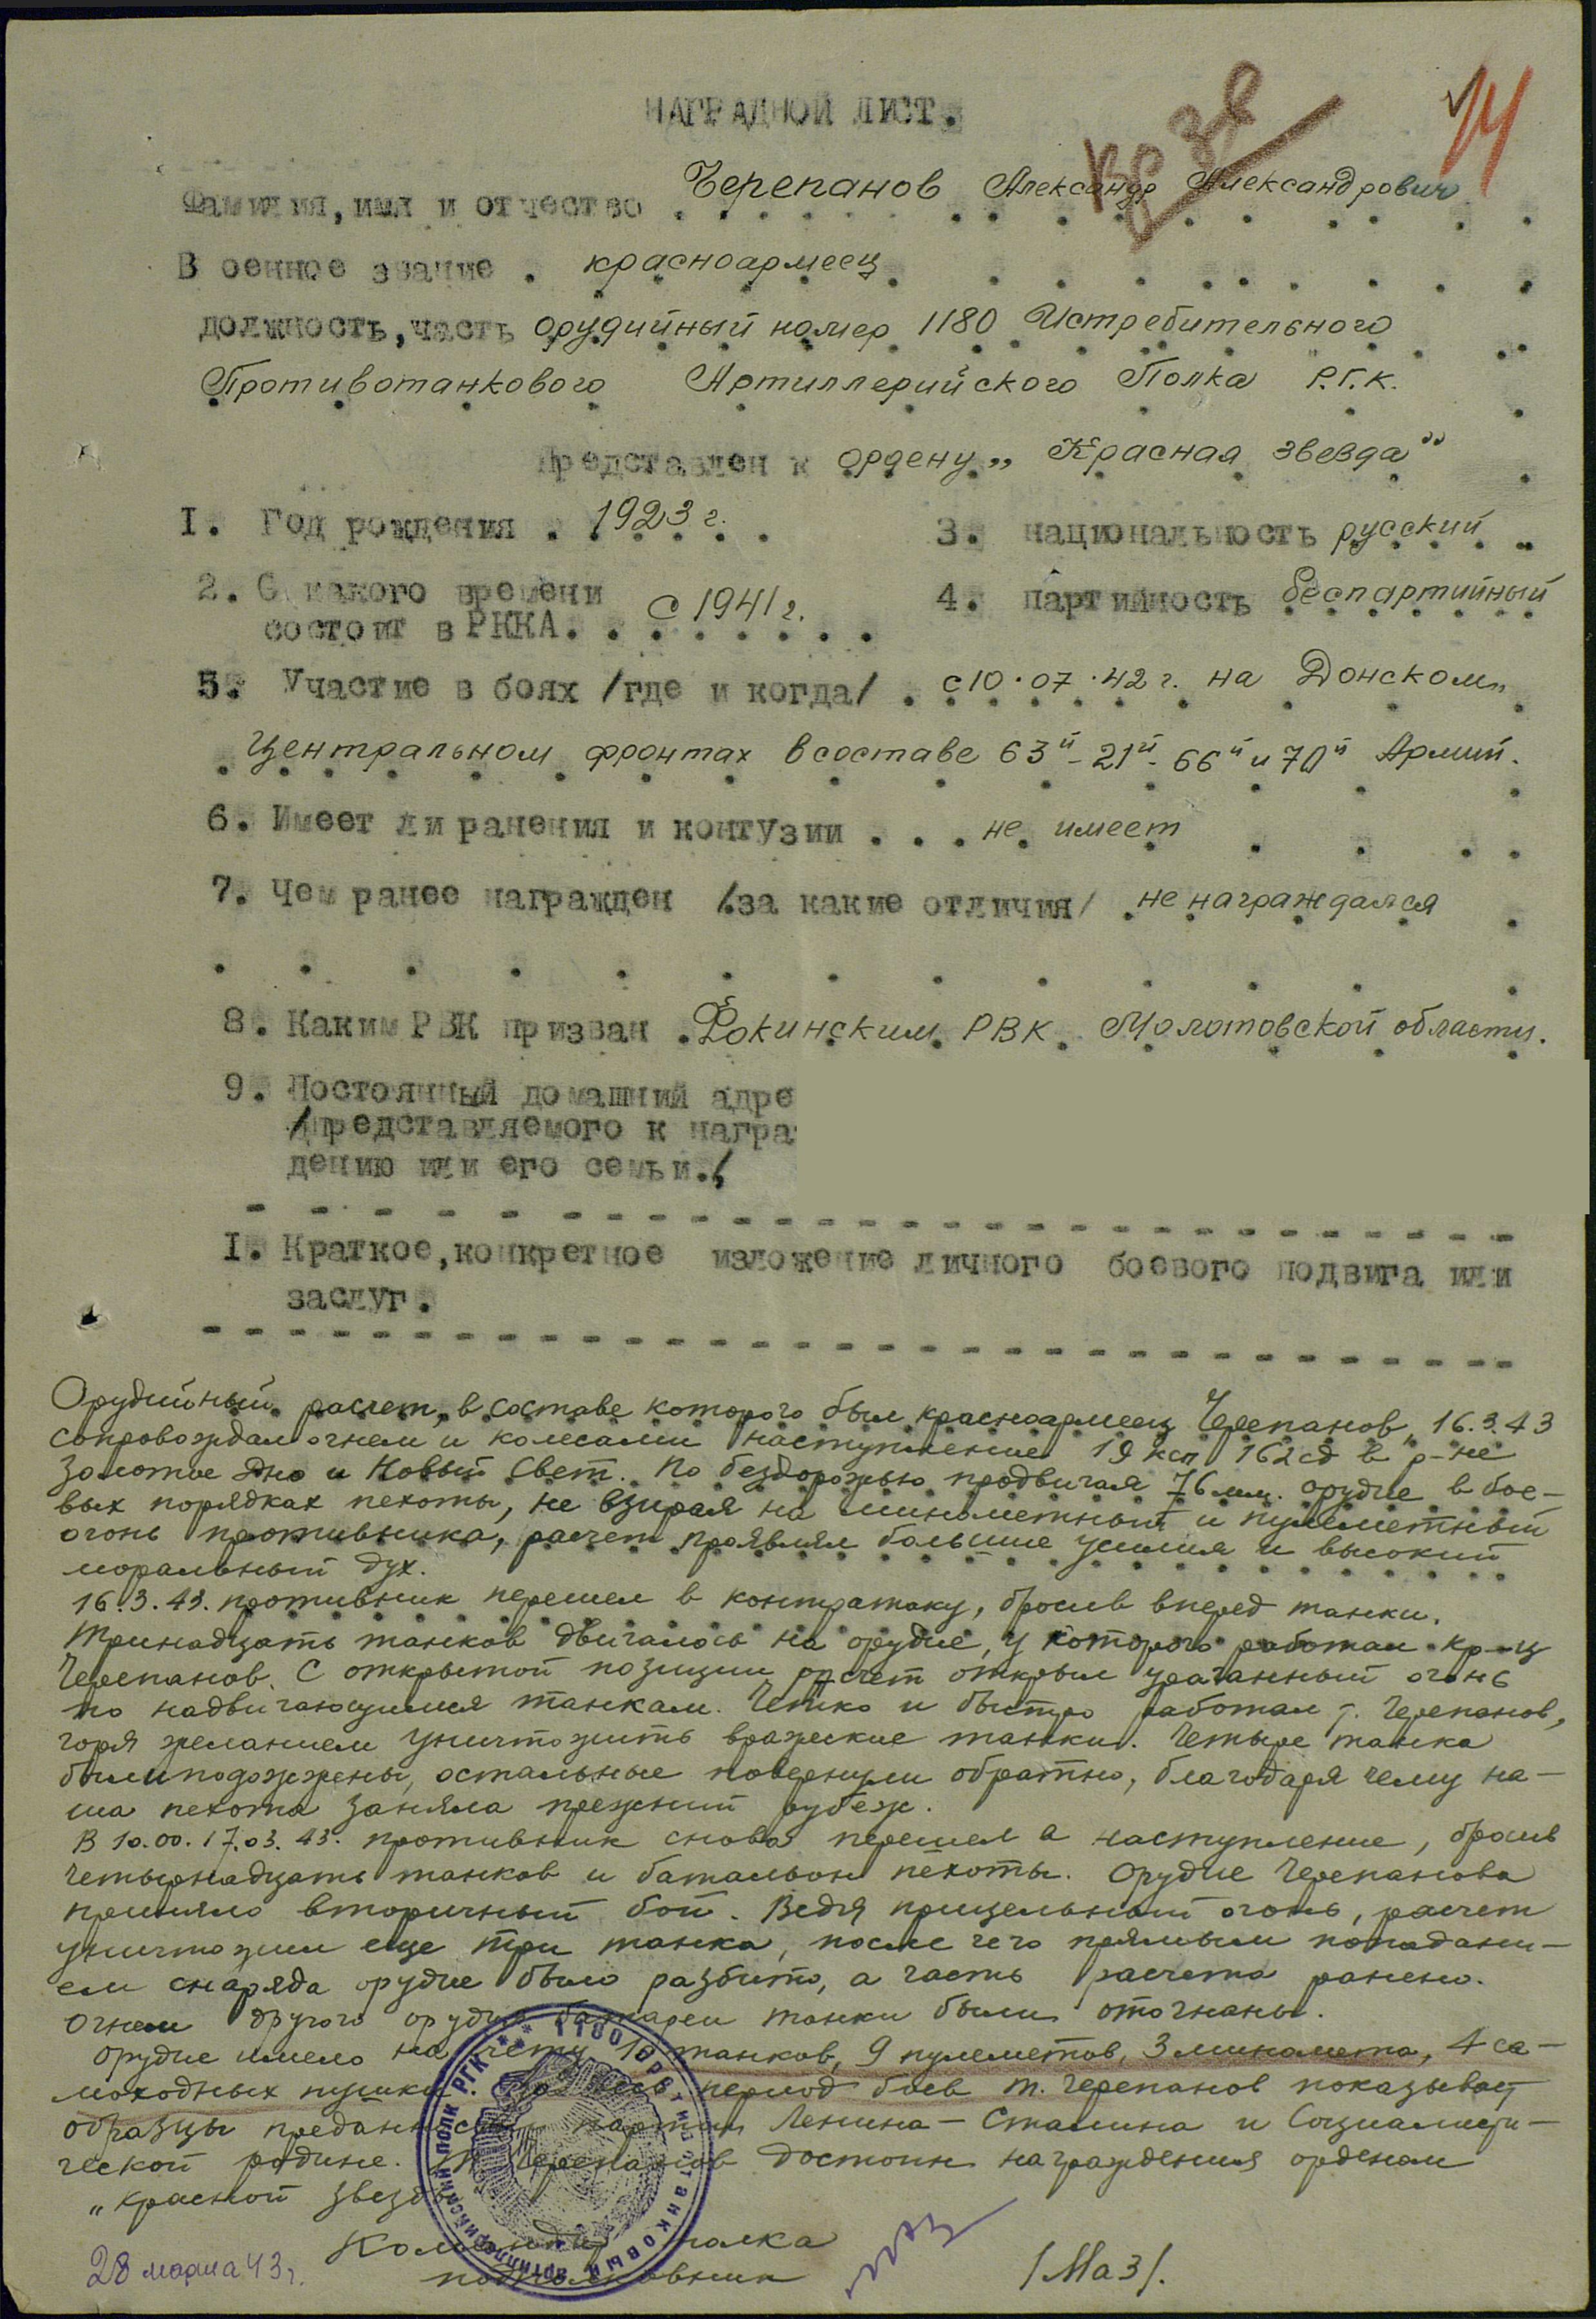 Кр Зв
14
НАГРАДНОЙ ЛИСТ.
Фамилия, имя и отчество . Черепанов Александр Александрович
Военное звание . красноармеец
должность, часть орудийный номер 1180 Истребительного
Противотанкового Артиллерийского Полка Р.Г.К.
Представлен к ордену „Красная звезда"
I. Год рождения . 1923 г.
3. национальность русский
2. С какого времени состоит в РККА. с 1941 г.
4. партийность беспартийный
5. Участие в боях /где и когда/ . с 10.07.42 г. на Донском,
Центральном фронтах в составе 63й - 21й - 66й и 70й Армий.
6. Имеет ли ранения и контузии . . . не имеет
7. Чем ранее награжден /за какие отличия/ . не награждался
8. Каким РВК призван . Фокинским РВК Молотовской области.
9. Постоянный домашний адре
/представляемого к награ
дению или его семьи./
I. Краткое, конкретное изложение личного боевого подвига или
заслуг.
Орудийный расчет, в составе которого был красноармеец Черепанов, 16.3.43
сопровождал огнем и колесами наступление 19 ксп 162 сд в р-не
Золотое Дно и Новый Свет. По бездорожью продвигая 76 мм. орудие в бое-
вых порядках пехоты, не взирая на минометный и пулеметный
огонь противника, расчет проявлял большие усилия и высокий
моральный дух.
16.3.43. противник перешел в контратаку, бросив вперед танки.
Тринадцать танков двигалось на орудие, у которого работал кр-ц
Черепанов. С открытой позиции расчет открыл ураганный огонь
по надвигающимся танкам. Четко и быстро работал т. Черепанов,
горя желанием уничтожить вражеские танки. Четыре танка
были подожжены, остальные повернули обратно, благодаря чему на-
ша пехота заняла прежний рубеж.
В 10.00. 17.03.43. противник снова перешел в наступление, бросив
четырнадцать танков и батальон пехоты. Орудие Черепанова
приняло вторичный бой. Ведя прицельный огонь, расчет
уничтожил еще три танка, после чего прямым попадани-
ем снаряда орудие было разбито, а часть расчета ранено.
Огнем другого орудия батареи танки были отогнаны.
Орудие имело на счету 10 танков, 9 пулеметов, 3 миномета, 4 са-
моходных пушки. За весь период боев т. Черепанов показывает
образцы преданности партии Ленина - Сталина и Социалисти-
ческой родине. Т. Черепанов достоин награждения орденом
„Красной звезды"
Командир полка
подполковник /Маз/.
28 марта 43 г.
1180 противотанковый артиллерийский полк РГК